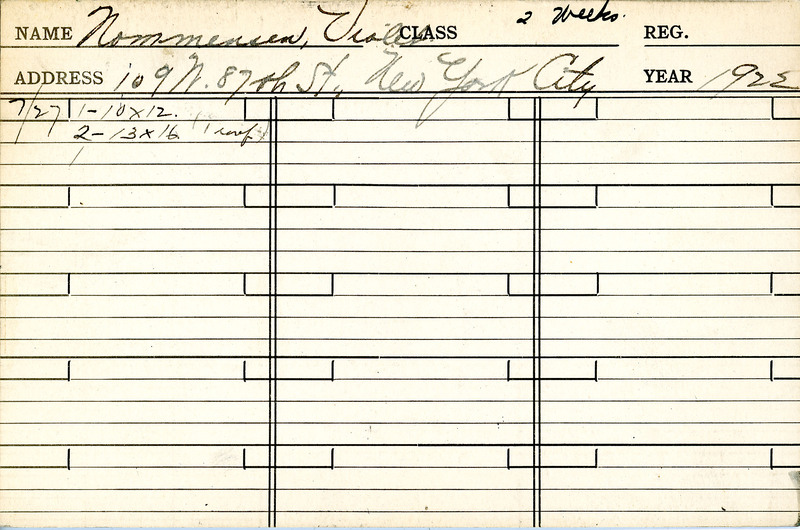 NAME Nommensen, Violet CLASS 2 Weeks. REG.
ADDRESS 109 W. 87th St., New York City YEAR 1922
7/27 1-10x12.
2-13x16